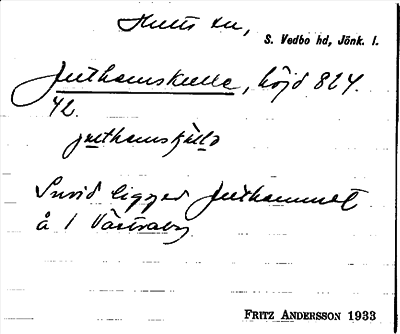 Hults sn,
S. Vedbo hd, Jönk. l.
Juthamskulle, höjd 824.
42.
juthamskulla
Invid ligger Juthammelt
å 1 Västraby
FRITZ ANDERSSON 1933